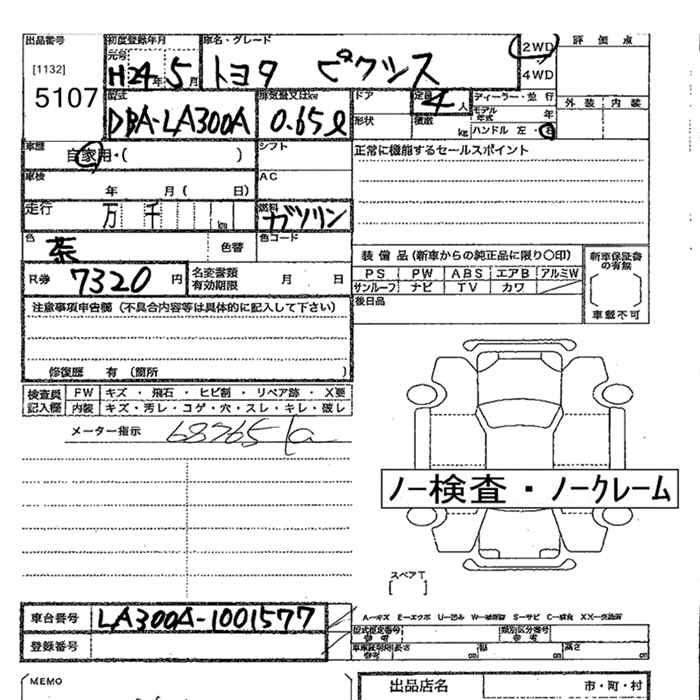 出品番号 初度登録年月 車名・グレード 2WD 評価点
元号
[1132] H24年5月 トヨタ ピクシス 4WD
5107
型式 排気量又はkw ドア 定員 4人 ディーラー・並行 外装 内装
DBA-LA300A 0.65ℓ 形状 積載 kg モデル年式 年
ハンドル 左・右
車歴 自家用・( ) シフト 正常に機能するセールスポイント
車検 年 月 ( 日) AC
走行 万 千 km 燃料 ガソリン
色 茶 色替 色コード 装備品(新車からの純正品に限り○印) 新車保証書の有無
R券 7320円 名変書類有効期限 月 日 PS PW ABS エアB アルミW
サンルーフ ナビ TV カワ
注意事項申告欄(不具合内容等は具体的に記入して下さい) 後日品 車載不可
修復歴 有(箇所 )
検査員記入欄 FW キズ・飛石・ヒビ割・リペア跡・X要
内装 キズ・汚レ・コゲ・穴・スレ・キレ・破レ
メーター指示 68765
ノー検査・ノークレーム
スペアT
[ ]
車台番号 LA300A-1001577 A-キズ E-エクボ U-凹み
登録番号 型式指定番号 参考 類別区分番号 参考
車庫証明用参考 長さ cm 幅 cm 高さ cm
MEMO 出品店名 市・町・村